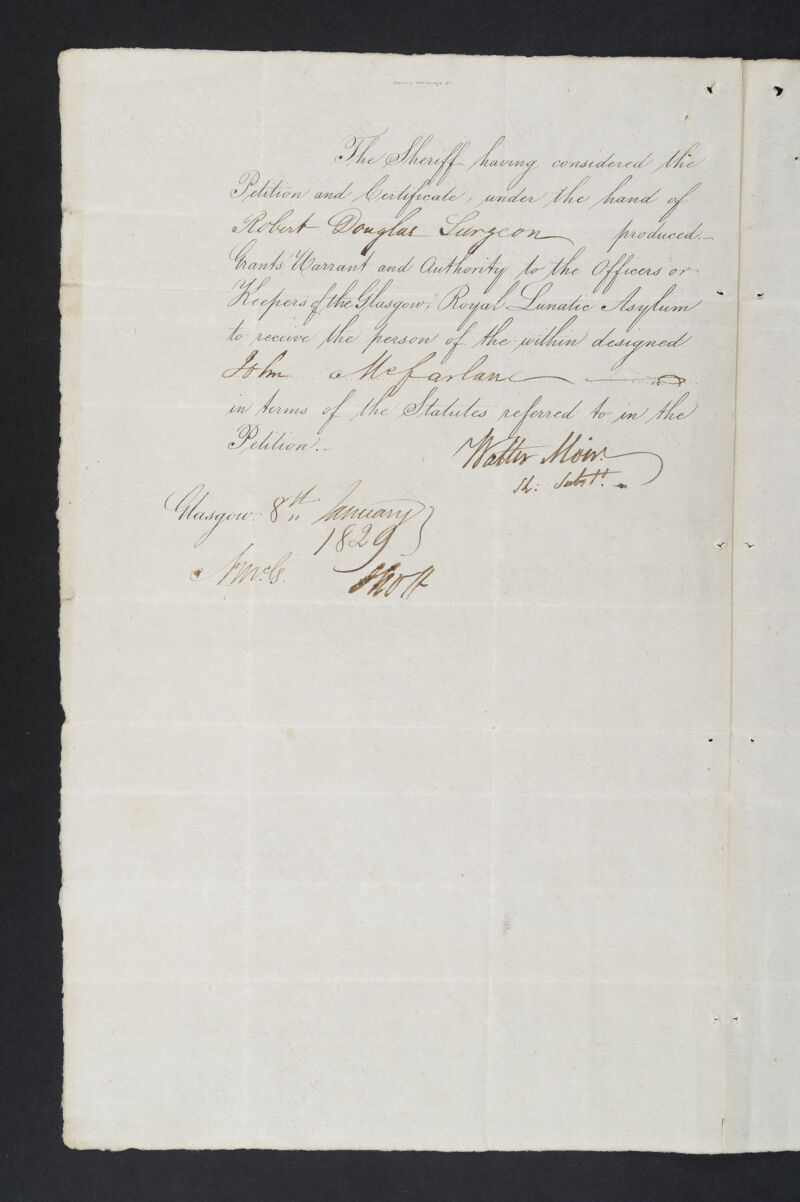 The Sheriff having considered the
Petition and Certificate, under the hand of
Robert Douglas Surgeon produced
Grants Warrant and Authority to the Officers or
Keepers of the Glasgow, Royal Lunatic Asylum
to receive the person of the within designed
John McFarlane
in terms of the Statutes referred to in the
Petition.
Walter Moir
Sh: Subst.
Glasgow 8th January
1829